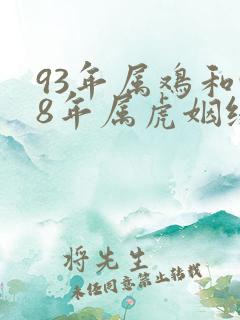 93年属鸡和
8年属虎姻缘
将先生
未经同意禁止转载